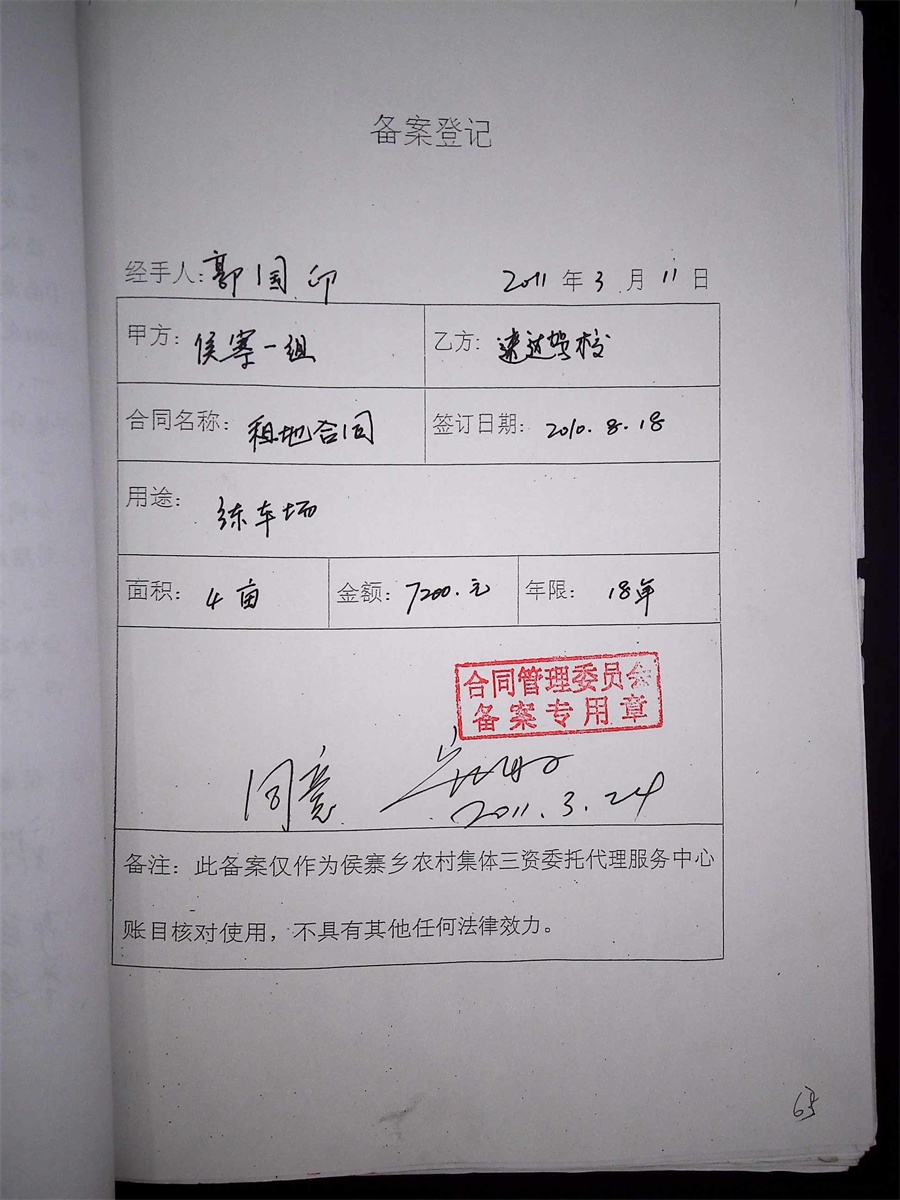 备案登记
经手人:郭国卯 2011 年 3 月 11 日
甲方: 侯寨一组 乙方: 速达驾校
合同名称: 租地合同 签订日期: 2010.8.18
用途: 练车场
面积: 4亩 金额: 7200.元 年限: 18年
合同管理委员会
备案专用章
同意
2011.3.24
备注:此备案仅作为侯寨乡农村集体三资委托代理服务中心
账目核对使用,不具有其他任何法律效力。